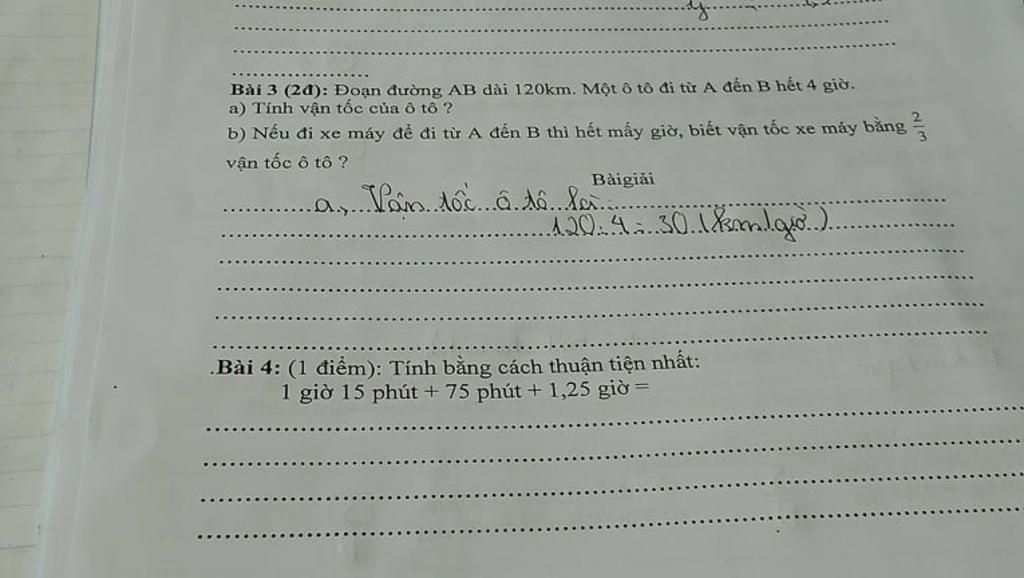 Bài 3 (2đ): Đoạn đường AB dài 120km. Một ô tô đi từ A đến B hết 4 giờ.
a) Tính vận tốc của ô tô ?
b) Nếu đi xe máy để đi từ A đến B thì hết mấy giờ, biết vận tốc xe máy bằng 2/3
vận tốc ô tô ?
Bàigiải
a, Vận tốc ô tô là:
120:4=30 (km/giờ)
.Bài 4: (1 điểm): Tính bằng cách thuận tiện nhất:
1 giờ 15 phút + 75 phút + 1,25 giờ =